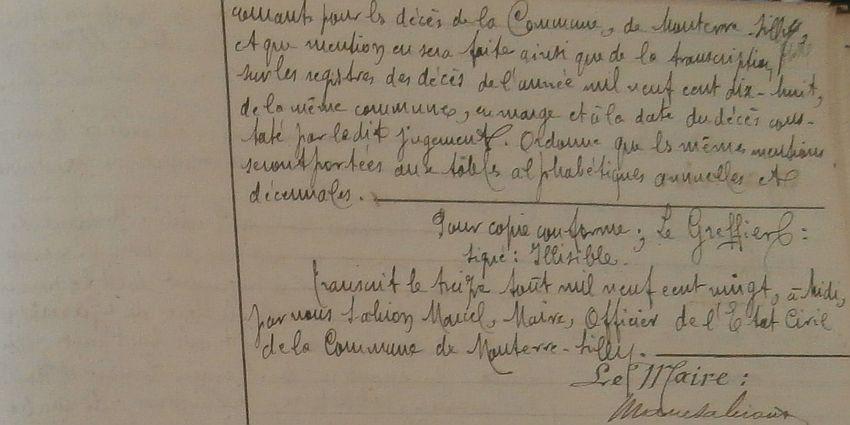 courants pour les décès de la Commune, de Mouterre-Silly,
et que mention en sera faite ainsi que de la transcription,
sur les registres des décès de l'année mil neuf cent dix-huit,
de la même commune, en marge et à la date du décès cons-
taté par ledit jugement. Ordonne que les mêmes mentions
seront portées aux tables alphabétiques annuelles et
décennales.
Pour copie conforme; Le Greffier:
signé: Illisible.
Transcrit le treize août mil neuf cent vingt, à midi,
par nous Marcel, Maire, Officier de l'Etat Civil
de la Commune de Mouterre-Silly.
Le Maire: